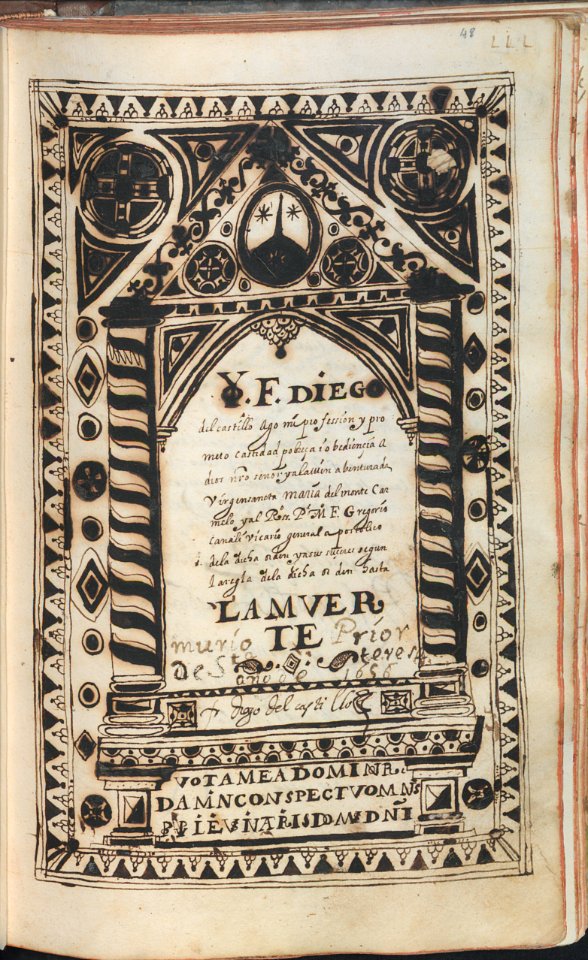 48
LLL
YO. F. DIEGO
del castillo Ago mi profession y pro
meto castidad pobreça i obediencia a
dios nro señor y a la bien abenturada
Virgen sancta maria del monte Car
melo y al Rmo. P. M. F Gregorio
Canali vicario general apostolico
de la dicha orden y a sus sucesores segun
la regla de la dicha orden hasta
LAMVER
TE
murio Prior
de Sta teresa
año de 1656
diego del castillo
VOTA MEA DOMINO
DAM IN CONSPECTV OMNS
IN ATRIIS DOMS DNI